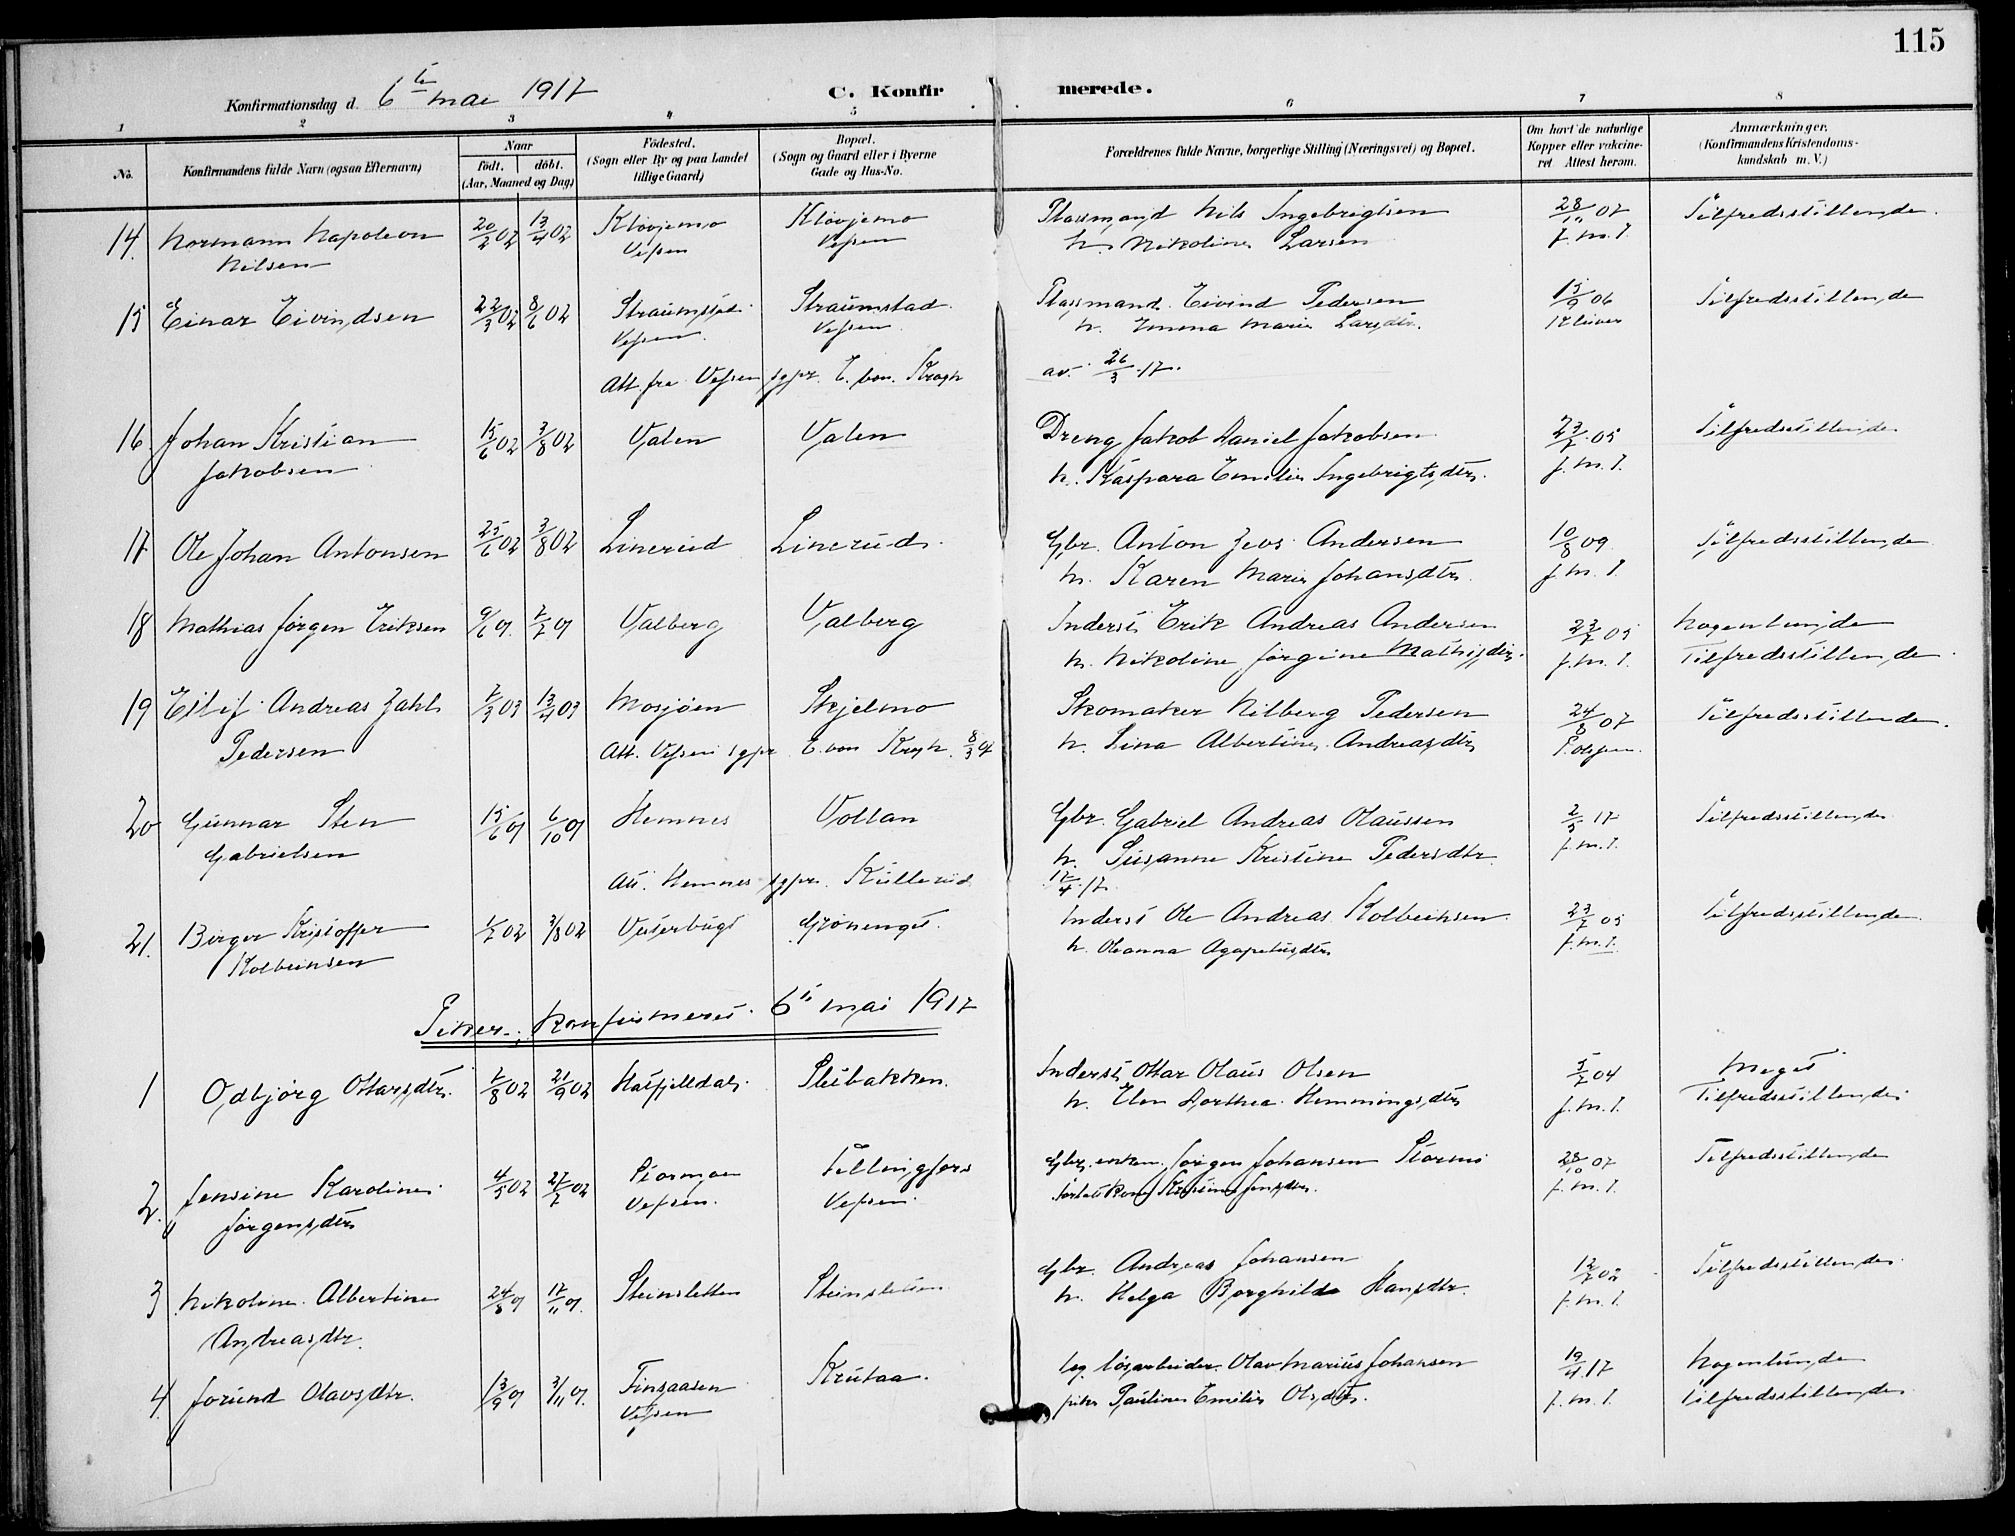 115
Konfirmationsdag d. 6te mai 1917
C. Konfirmerede.
1 2 3 4 5 6 7 8
No.
Konfirmandens fulde Navn (ogsaa Efternavn)
Naar
født. døbt.
(Aar, Maaned og Dag)
Fødested.
(Sogn eller By og paa Landet
tillige Gaard)
Bopæl.
(Sogn og Gaard eller i Byerne
Gade og Hus-No.
Forældrenes fulde Navne, borgerlige Stilling (Næringsvei) og Bopæl.
Om havt de naturlige
Kopper eller vakcine-
ret Attest herom.
Anmærkninger.
(Konfirmandens Kristendoms-
kundskab m. V.)
14. Normann Napoleon 20/2 02 13/4 02 Kløvjemo Kløvjemo Plassmand Nils Ingebrigtsen 28/10 07 Tilfredsstillende.
Nilsen Vefsen Vefsen h. Nikoline Larsen f. m. J.
15 Einar Eivindsen 22/3 02 8/6 02 Straumstad Straumstad Plassmand Eivind Pedersen 15/9 06 Tilfredsstillende
Vefsen. Vefsen h. Emma Marie Larsdtr.
Att. fra Vefsen sgpr. E. von Krogh av. 26/3 17.
16 Johan Kristian 15/6 02 3/8 02 Valen Valen Dreng Jakob Daniel Jakobsen 23/7 05 Tilfredsstillende
Jakobsen h. Kaspara Emilie Ingebrigtsdtr. f. m. J.
17 Ole Johan Antonsen 25/6 02 3/8 02 Linerud Linerud. Gbr. Anton Andersen 10/8 09 Tilfredsstillende
h. Karen Marie Johansdtr. f. m. J.
18 Mathias Jørgen Eriksen 9/6 01. 7/7 01 Valberg Valberg Inderst Erik Andreas Andersen 23/7 05 Nogenlunde
h. Nikoline Jørgine Mathisdtr. f. m. J. Tilfredsstillende.
19 Eilif Andreas Zahl 7/3 03 13/4 03 Mosjøen Skjelmo Skomaker Hilberg Pedersen 24/8 07 Tilfredsstillende.
Pedersen Att. Vefsen sgpr. E. von Krogh. 8/3 h. Lina Albertine Andreasdtr
20 Gunnar Sten 15/6 01 6/10 01 Hemnes Vollan Gbr. Gabriel Andreas Olaussen 2/5 17 Tilfredsstillende
Gabrielsen h. Susanne Kristine Pedersdtr f. m. J.
Att. Hemnes sgpr. Kullerud 17/4 17.
21. Birger Kristoffer 1/7 02 3/8 02 Vesterbugt Grønenget. Inderst Ole Andreas Kolbeinsen 23/7 05 Tilfredsstillende
Kolbeinsen h. Oleanna Agapetusdtr f. m. J.
Piker, konfirmeret 6te mai 1917
1 Odbjørg Ottarsdtr. 7/8 02 21/9 02 Hatfjelldal. Stubakken. Inderst Ottar Olaus Olsen 5/7 04 Meget
h. Elen Dorthea Hemmingsdtr f. m. J. Tilfredsstillende
2. Jensine Karoline 4/5 02 27/7 02 Stormoen Fellingfors Gbr. enkem. Jørgen Johansen Stormo 28/10 07 Tilfredsstillende
Jørgensdtr Vefsen. Vefsen f. m. J.
3 Nikoline Albertine 24/8 01 17/11 01. Steinsletten Steinsletten Gbr. Andreas Johansen 12/7 02 Tilfredsstillende
Andreasdtr. h. Helga Borghilde Hansdtr. f. m. J.
4. Jorund Olavsdtr. 13/9 01 3/11 01. Finsaasen Krutaa. lösarbeider Olav Marius Johansen 19/4 17 Nogenlunde
Vefsen pike Pauline Emilie Olsdtr. f. m. J. Tilfredsstillende